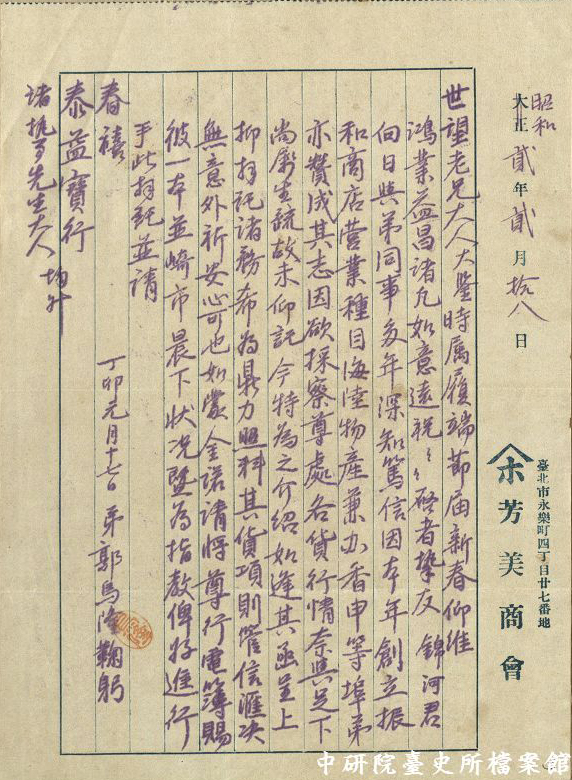 昭和
大正貳年貳月拾八日
臺北市永樂町四丁目廿七番地
芳美商會
世望老兄大人大鑒時属履端節届新春仰維
鴻業益昌諸凡如意遠祝々啓者摯友錦河君
向日與弟同事多年深知篤信因本年創立振
和商店營業種目海陸物產兼办香申等埠弟
亦贊成其志因欲採察尊處各貨行情奈與足下
尚屬生疏故未仰託今特為之介紹如逢其函呈上
抑拜託諸務希為鼎力照料其貨項則管信滙决
無意外祈安心可也如蒙金諾請將尊行電簿賜
彼一本並崎市晨下狀況暨為指教俾好進行
手此拜託並請
春禧
泰益寶行
諸執事先生大人均升
丁卯元月十七日弟郭馬鞠躬
中研院臺史所檔案館